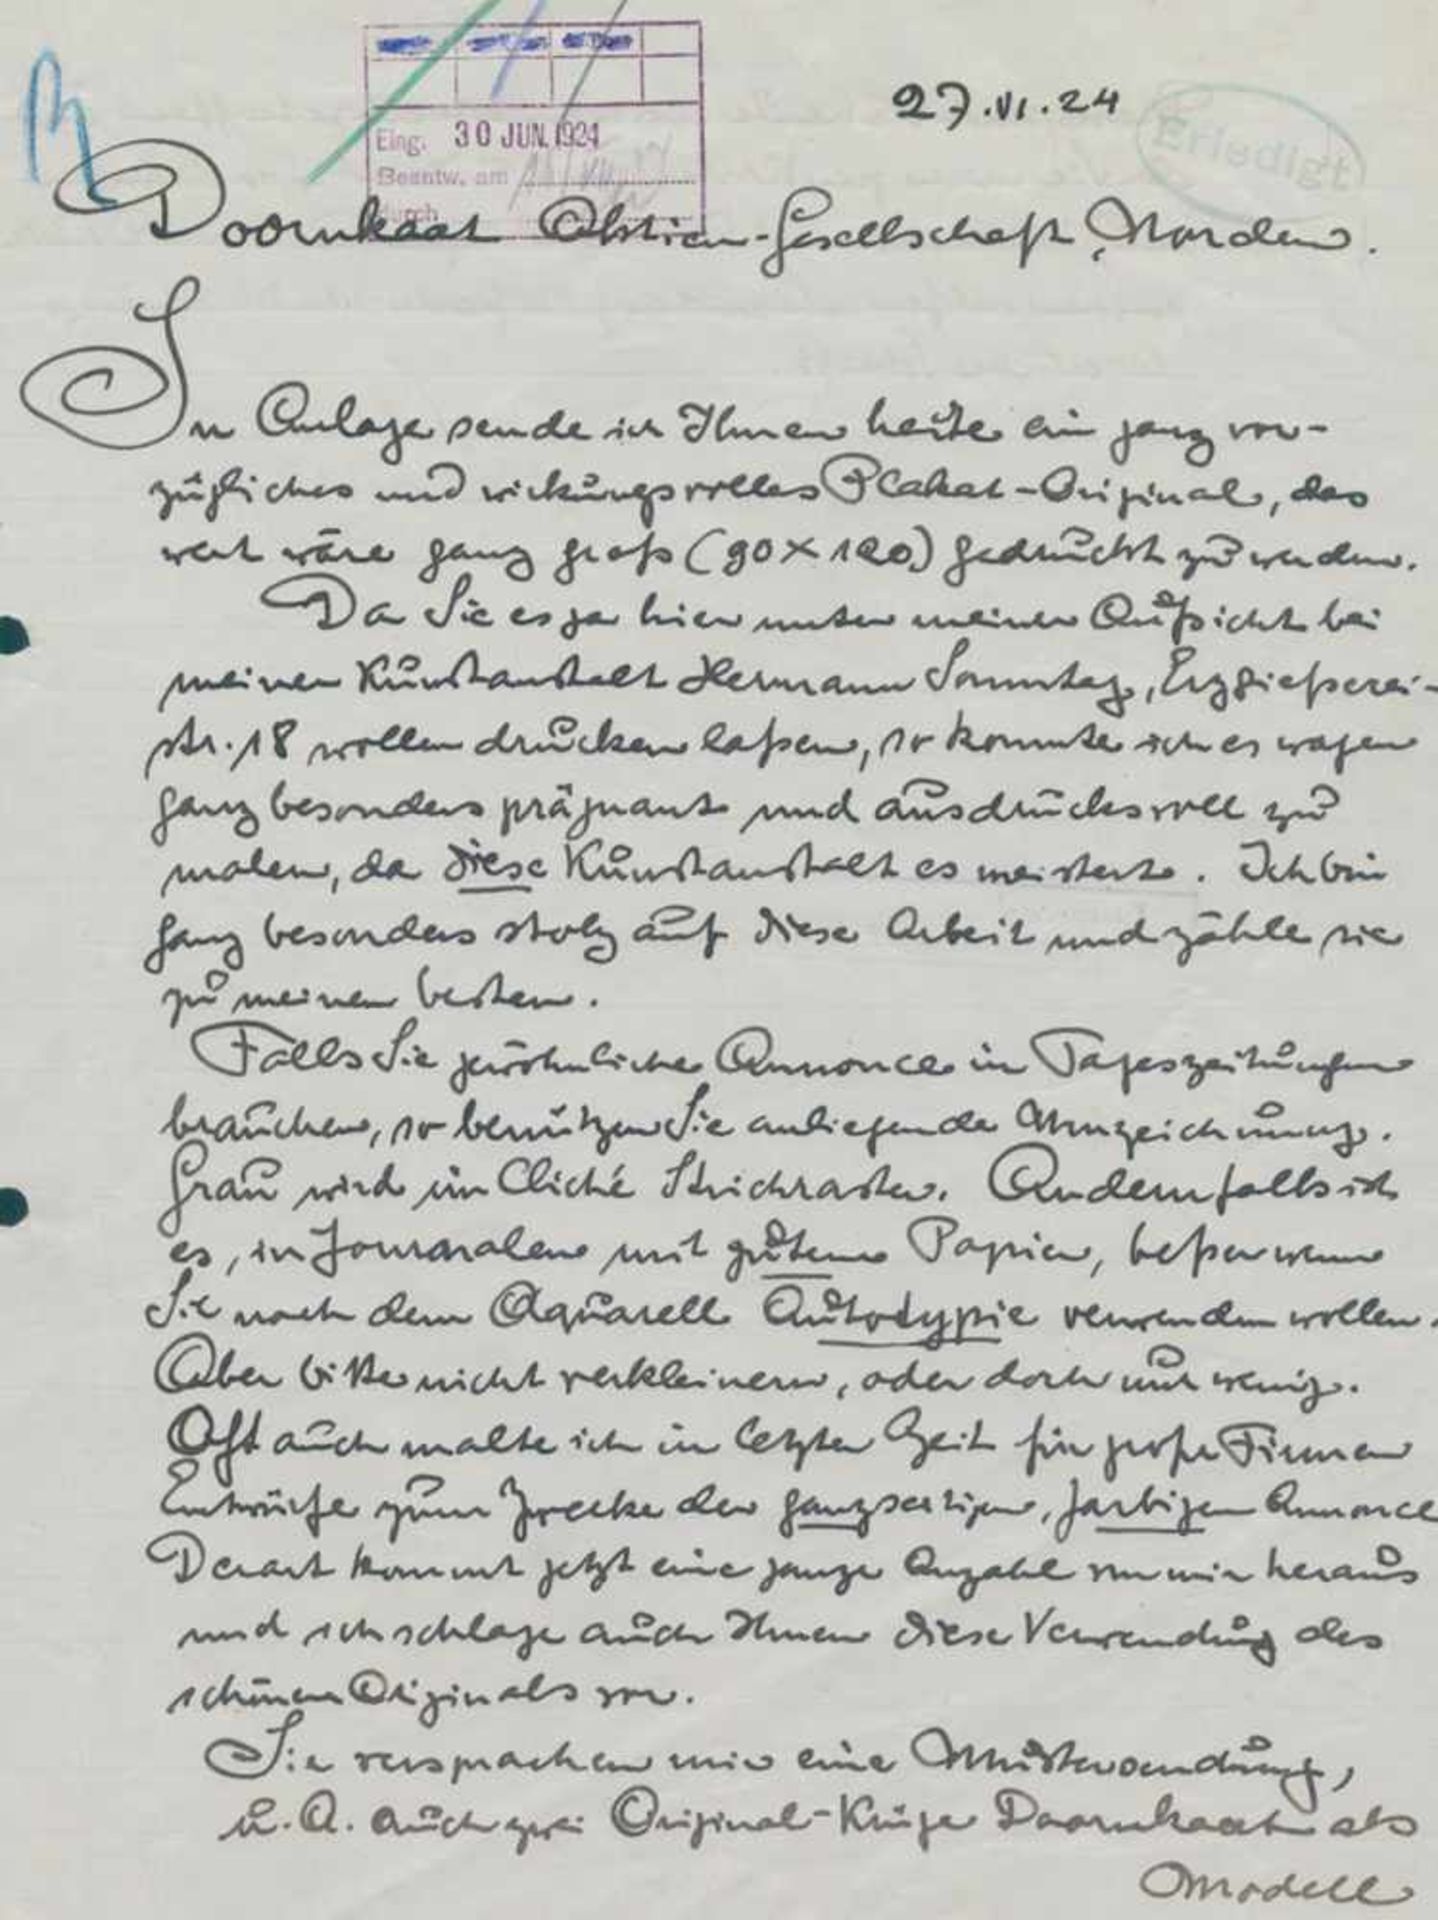 27.VI.24
Erledigt
Eing. 30 JUN. 1924
Beantw. am
durch
Doornkaat Aktien-Gesellschaft, Norden.
In Anlage sende ich Ihnen heute ein ganz vor-
zügliches und wirkungsvolles Plakat-Original, das
wert wäre ganz groß (90 x 120) gedruckt zu werden.
Da Sie es ja hier unter meiner Aufsicht bei
meiner Kunstanstalt Hermann Sonntag, Erzgießerei-
str. 18 wollen drucken laßen, so konnte ich es wagen
ganz besonders prägnant und ausdrucksvoll zu
malen, da diese Kunstanstalt es meisterte. Ich bin
ganz besonders stolz auf diese Arbeit und zähle sie
zu meinen besten.
Falls Sie gewöhnliche Annonce in Tageszeitungen
brauchen, so benützen Sie anliegende Umzeichnung.
Grau wird im Cliché Strichraster. Andernfalls ist
es, in Journalen mit gutem Papier, beßer wenn
Sie nach dem Aquarell Autotypie verwenden wollen.
Aber bitte nicht verkleinern, oder doch nur wenig.
Oft auch malte ich in letzter Zeit für große Firmen
Entwürfe zum Zwecke der ganzseitigen, farbigen Annonce
Derart kommt jetzt eine ganze Anzahl von mir heraus
und ich schlage auch Ihnen diese Verwendung des
schönen Originals vor.
Sie versprachen mir eine Mustersendung,
u. A. auch zwei Original-Krüge Doornkaat als
Modell